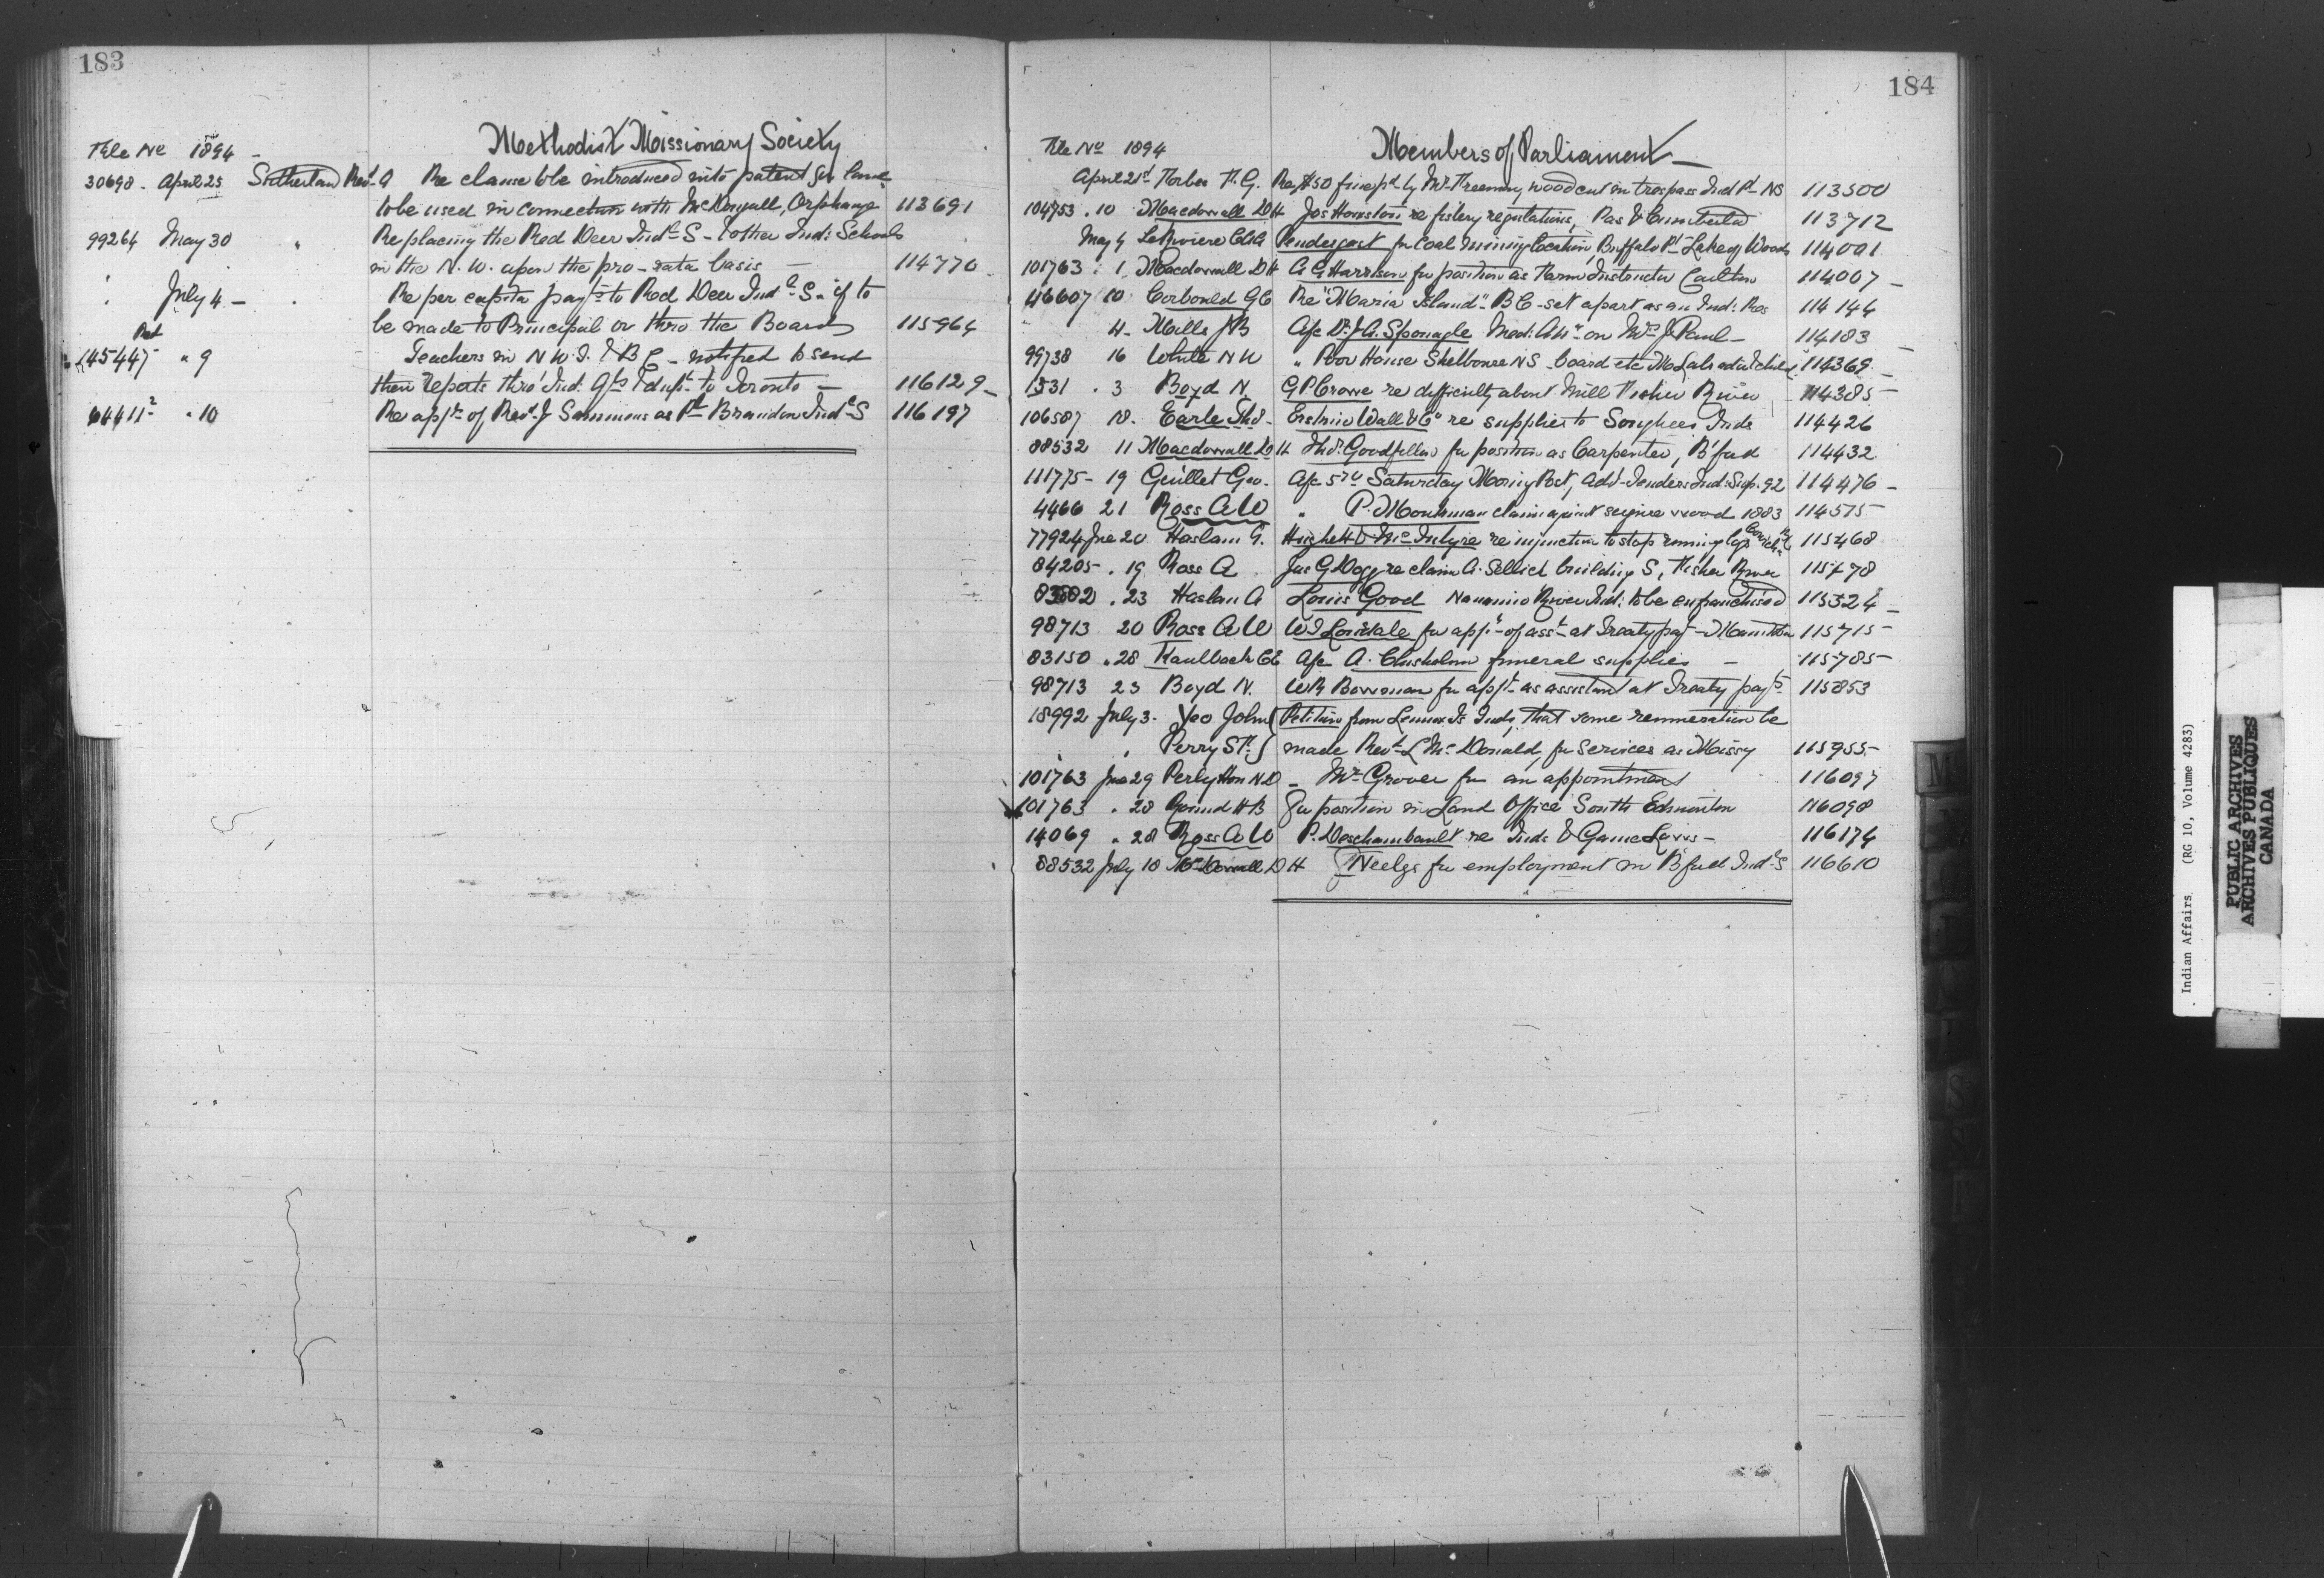 183
Methodist Missionary Society
File No 1894
30698 - April 25 Sutherland Revd A Re clause to be introduced into patent for land
to be used in connection with McDougall, Orphanage 113691
99264 May 30 " Re placing the Red Deer Indl S - & other Ind: Schools
in the N. W. upon the pro-rata basis — 114770
July 4 - Re per capita payts to Red Deer Indl S. if to
be made to Principal or thro the Board 115964
145447 " 9 Teachers in N W. T. & B C - notified to send
their reports thro' Ind: Agts & dupt to Toronto — 116129
64411² " 10 Re appt of Revd J Semmens as Pl Brandon Indl S 116197
184
Members of Parliament
File No 1894
April 21st Forbes F. G. Re $50 fine pd by Mr Freeman, wood cut in trespass Ind Rt NS 113500
104753 . 10 Macdowall D H Jos Houston re fishery regulations, Pas & Cumberland 113712
May 4 LaRiviere Pendergast for Coal mining location, Buffalo Pt Lake of Woods 114001
101763 . 1 Macdowall D H A G Harrison for position as Farm Instructor Carlton 114007
46607 10 Corbould G E Re "Maria Island" B C - set apart as an Ind: Res 114144
4 - Mills J B A/c Dr J A. Sponagle Med: Attn on Mrs J Paul - 114183
99738 16 White N W " Poor House Shelbourne NS - board etc 114369
1531 . 3 Boyd N. G P Crowe re difficulty about Mill Fisher River 114385
106587 18 . Earle Thos - Erskine Wall & Co re supplies to Songhees Inds 114426
88532 11 Macdowall D H Thos Goodfellow for position as Carpenter, B'ford 114432
111775 - 19 Guillet Geo. A/c 5 Saturday Morning Post, Advt Tenders Ind: Sup. 92 114476
4466 21 Ross A W " P. Mourman claim against seizure wood 1883 114575
77924 Jne 20 Haslam A. Hughett & McIntyre re injunction to stop running logs Cowichan 115468
84205 . 19 Ross A Jas G Dagg re claim A. Sellick building S, Fisher River 115478
83582 . 23 Haslam A Louis Good Nanaimo River Ind: to be enfranchised 115524
98713 20 Ross A W W J Lonsdale for appt of asst at Treaty payt - Manitoba 115715
83150 . 28 Kaulbach C E A/c A. Chisholm funeral supplies - 115785
98713 23 Boyd N. W R Bowman for appt as assistant at Treaty payts 115853
18992 July 3 . Yeo John Petition from Lennox Is Inds, that some remuneration be
Perry S F. made Revd McDonald, for services as Missy 115955
101763 Jne 29 Perley Hon W D - Mr Grover for an appointment 116097
101763 . 28 for position in Land Office South Edmonton 116098
14069 . 28 Ross A W P. Deschambault re Inds & Game Laws - 116174
88532 July 10 McDowall D H J Neelgs for employment in B'ford Indl S 116610
Indian Affairs (RG 10, Volume 4283)
PUBLIC ARCHIVES
ARCHIVES PUBLIQUES
CANADA